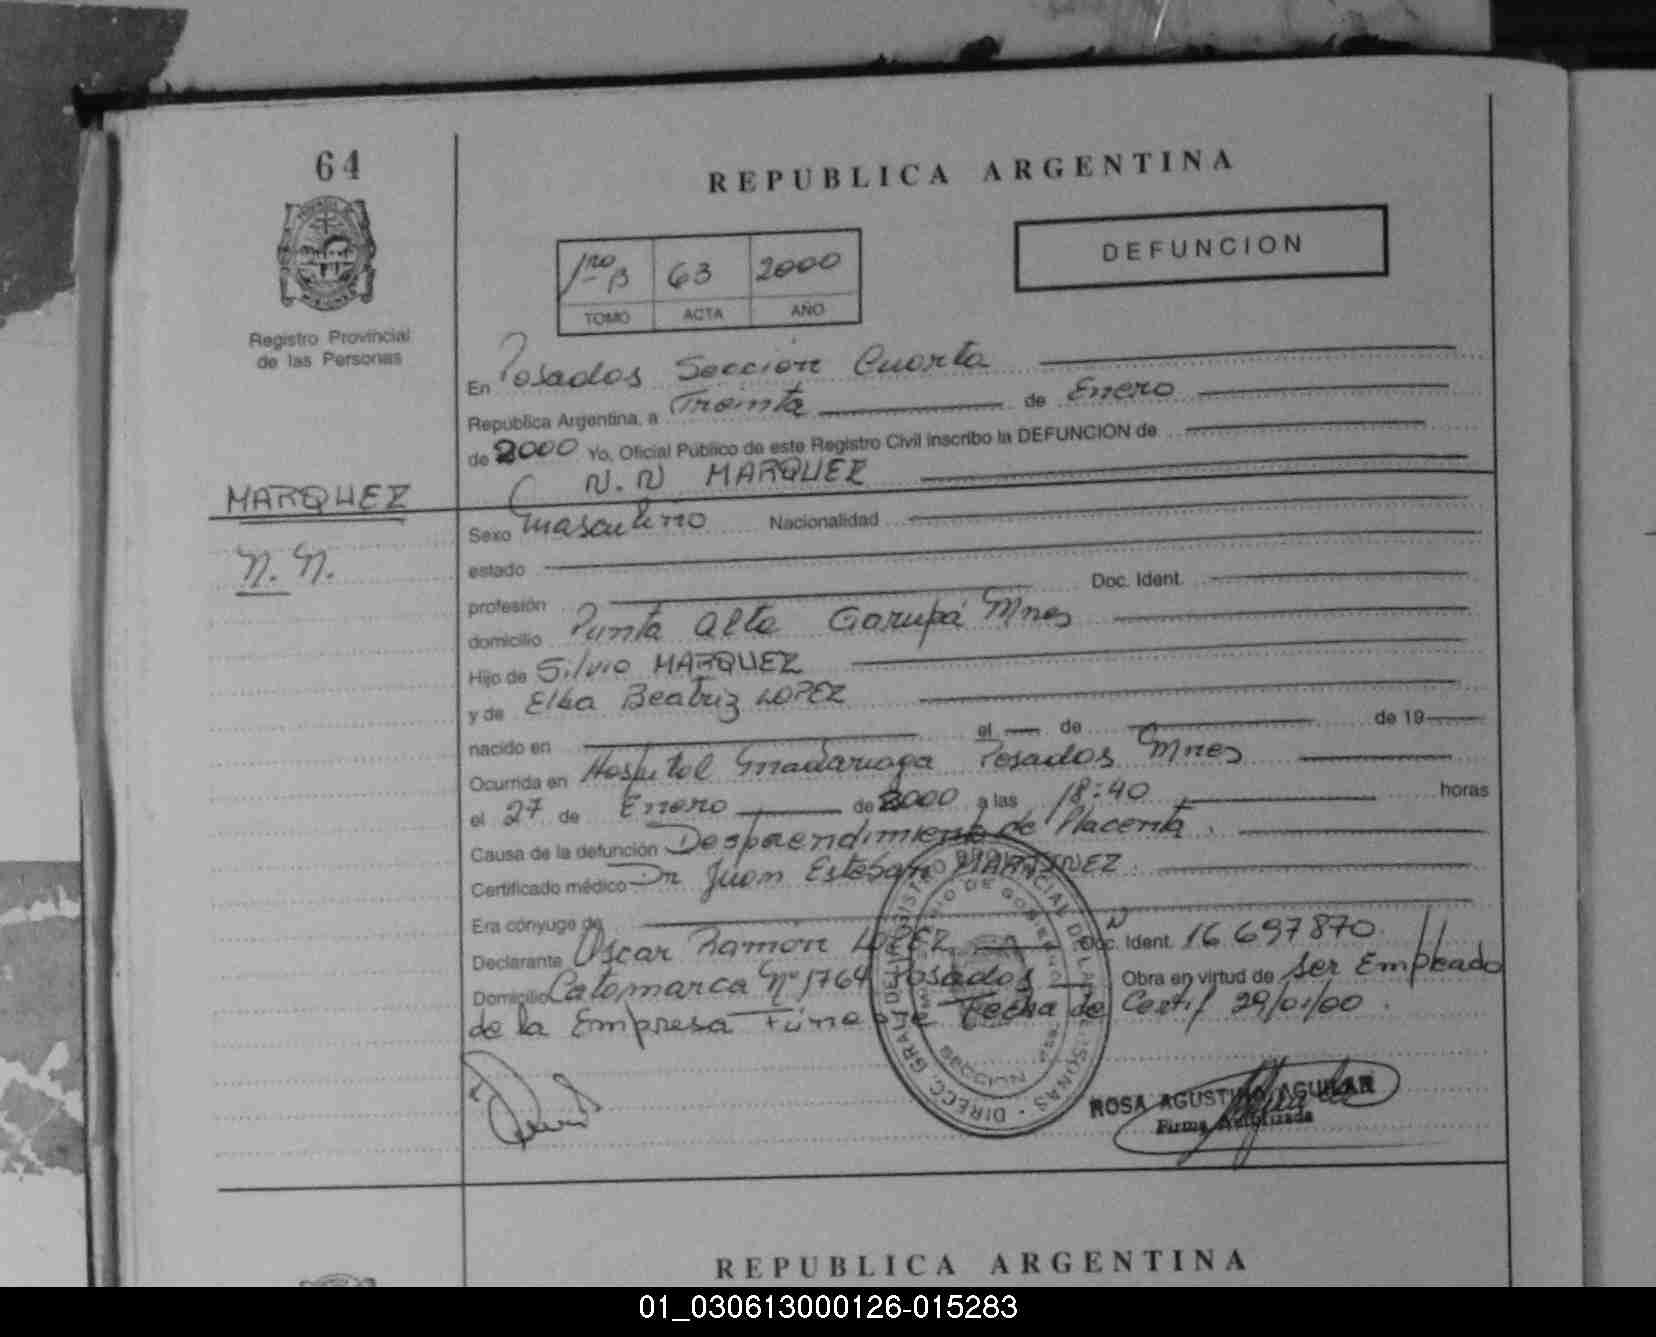 64
REPUBLICA ARGENTINA
DEFUNCION
1ro B 63 2000
TOMO ACTA AÑO
Registro Provincial
de las Personas
En Posadas Sección Cuarta
República Argentina, a Treinta de Enero
de 2000 Yo, Oficial Público de este Registro Civil inscribo la DEFUNCION de
N.N MARQUEZ
MARQUEZ
N. N.
Sexo masculino Nacionalidad
estado
profesión Doc. Ident.
domicilio Punta Alta Garupá Mnes
Hijo de Silvio MARQUEZ
y de Elba Beatriz LOPEZ
nacido en el de de 19
Ocurrida en Hospital Madariaga Posadas Mnes
el 27 de Enero de 2000 a las 18:40 horas
Causa de la defunción Desprendimiento de Placenta.
Certificado médico Dr Juan Esteban MARTINEZ
Era cónyuge de
Declarante Oscar Ramon LOPEZ Doc. Ident. 16.697870
Domicilio Catamarca Nº 1764 Posadas Obra en virtud de ser Empleado
de la Empresa Fecha de Certif 29/01/00.
ROSA AGUSTINA AGUILAR
Firma Autorizada
REPUBLICA ARGENTINA
01_030613000126-015283